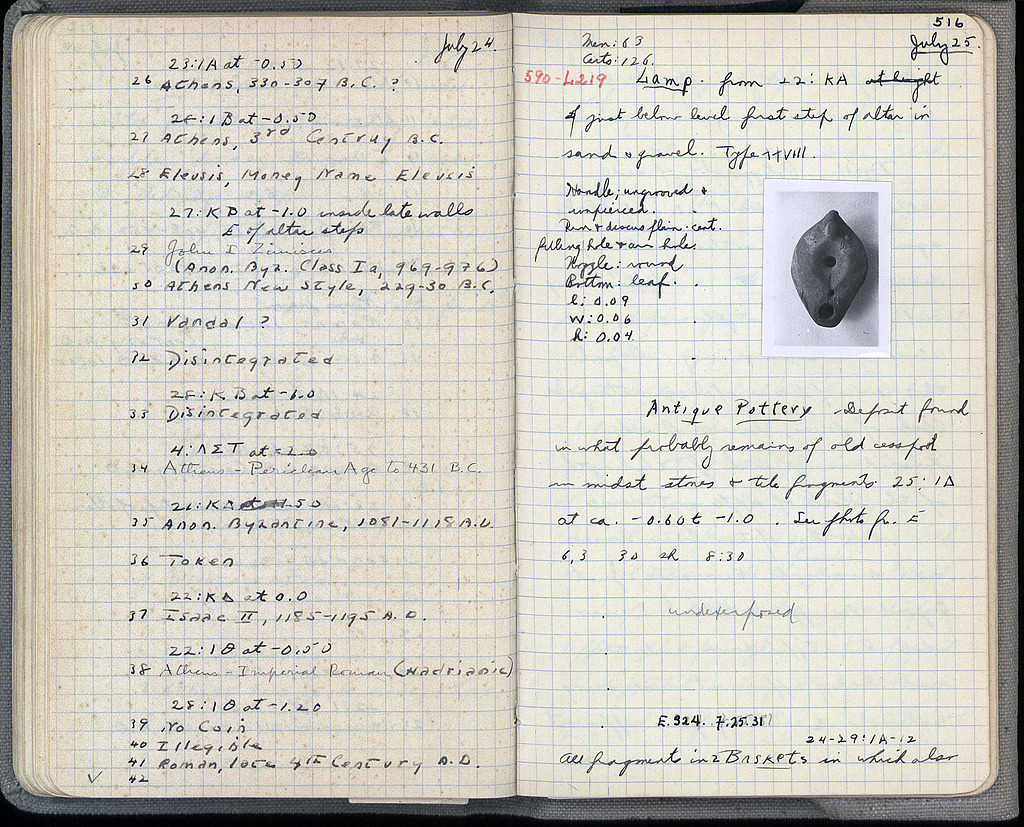 July 24.
23:1A at -0.50
26 Athens, 330-307 B.C. ?
26:1B at -0.50
27 Athens, 3rd Centruy B.C.
28 Eleusis, Money Name Eleusis
27:KB at -1.0 inside late walls
E of altar steps
29 John I Zimisces
(Anon. Byz. Class Ia, 969-976)
30 Athens New Style, 229-30 B.C.
31 Vandal ?
32 Disintegrated
28:KB at -1.0
33 Disintegrated
4:ΛΣΤ at -2.0
34 Athens - Periclean Age to 431 B.C.
35 Anon. Byzantine, 1081-1118 A.D.
36 Token
22:KΔ at 0.0
37 Isaac II, 1185-1195 A.D.
22:1Θ at -0.50
38 Athens - Imperial Roman (Hadrianic)
28:1Θ at -1.20
39 No Coin
40 Illegible
41 Roman, late 4th Century A.D.
42
516
July 25.
Men: 63
Carts: 126.
590-L219 Lamp. from 22:KA at height
of just below level first step of altar in
sand & gravel. Type XXVIII.
Handle; ungrooved &
unpierced.
Rim & discus plain. cent.
filling hole & air holes
Nozzle: round
Bottom: leaf.
l: 0.09
W: 0.06
h: 0.04
Antique Pottery Deposit found
in what probably remains of old cesspool
in midst stones & tile fragments 25:1Δ
at ca. -0.60 t -1.0. See photo fr. E
6,3 30 sh 8:30
underexposed
E.324. 7.25.31
24-29:1A-12
All fragments in 2 Baskets in which also